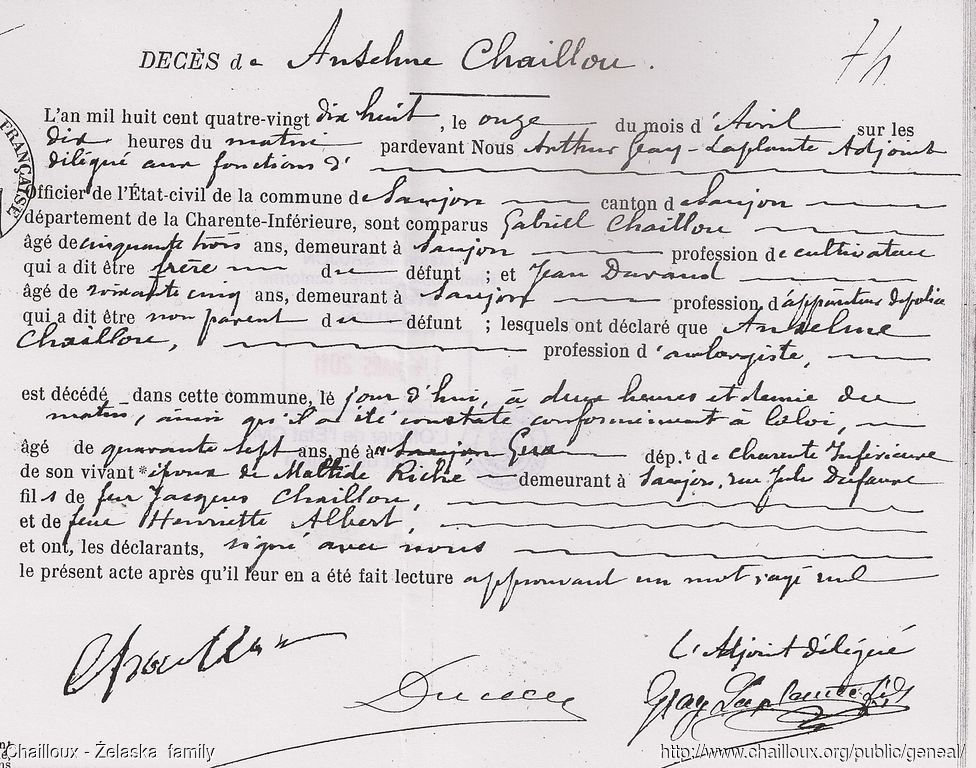 74
DECÈS de Anselme Chaillou.
L'an mil huit cent quatre-vingt dix huit, le onze du mois d'Avril sur les
dix heures du matin pardevant Nous Arthur Geay-Laplante Adjoint
délégué aux fonctions d'
Officier de l'État-civil de la commune de Saujon canton de Saujon
département de la Charente-Inférieure, sont comparus Gabriel Chaillou
âgé de cinquante trois ans, demeurant à Saujon profession de cultivateur
qui a dit être frère du défunt ; et Jean Durand
âgé de soixante cinq ans, demeurant à Saujon profession d'appariteur de police
qui a dit être non parent du défunt ; lesquels ont déclaré que Anselme
Chaillou, profession d'horlogiste,
est décédé dans cette commune, le jour d'hui, à deux heures et demie du
matin, ainsi qu'il a été constaté conformément à la loi,
âgé de quarante sept ans, né à Saujon dép.t de Charente Inférieure
de son vivant époux de Mathide Riché demeurant à Saujon, rue Jules Dufaure
fils de feu Jacques Chaillou,
et de feue Henriette Albert,
et ont, les déclarants, signé avec nous
le présent acte après qu'il leur en a été fait lecture approuvant un mot rayé nul
Chaillou
L'Adjoint délégué
Geay Laplante fils
FRANÇAISE
Chailloux - Żelaska family
http://www.chailloux.org/public/geneal/